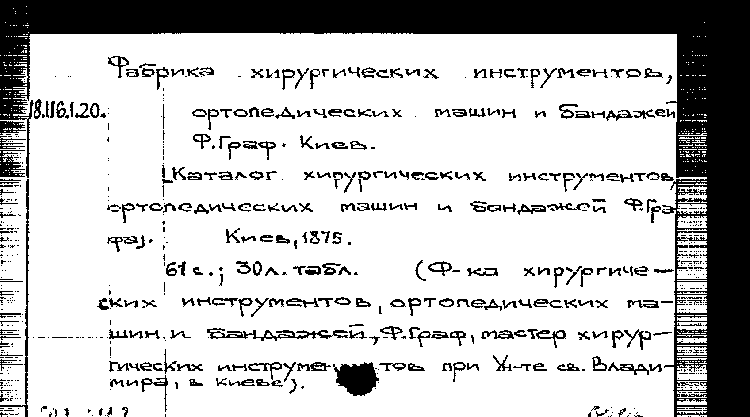 Фабрика хирургических инструментов,
18.116.1.20.
ортопедических машин и бандажей
Ф.Граф. Киев.
[Каталог хирургических инструментов,
ортопедических машин и бандажей Ф.Гра
фа].   Киев, 1875.
61 с.; 30 л. табл.   (Ф-ка хирургиче-
ских инструментов, ортопедических ма-
шин и бандажей, Ф.Граф, мастер хирур-
гических инструментов при Ун-те св. Влади-
мира, в Киеве).